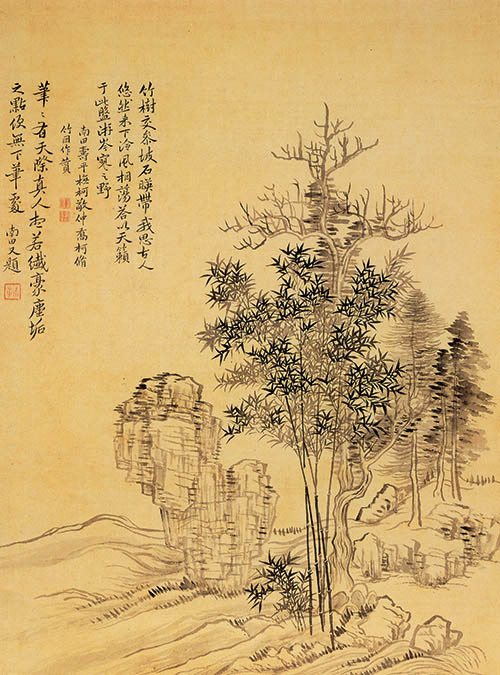 竹樹交參坡石暎帶我思古人
悠然來下泠風相蕩答以天籟
于此盤游岑寂之野
南田壽平橅柯敬仲喬柯脩
竹因作贊
筆〻有天際真人想若纖豪塵垢
之點便無下筆處 南田又題